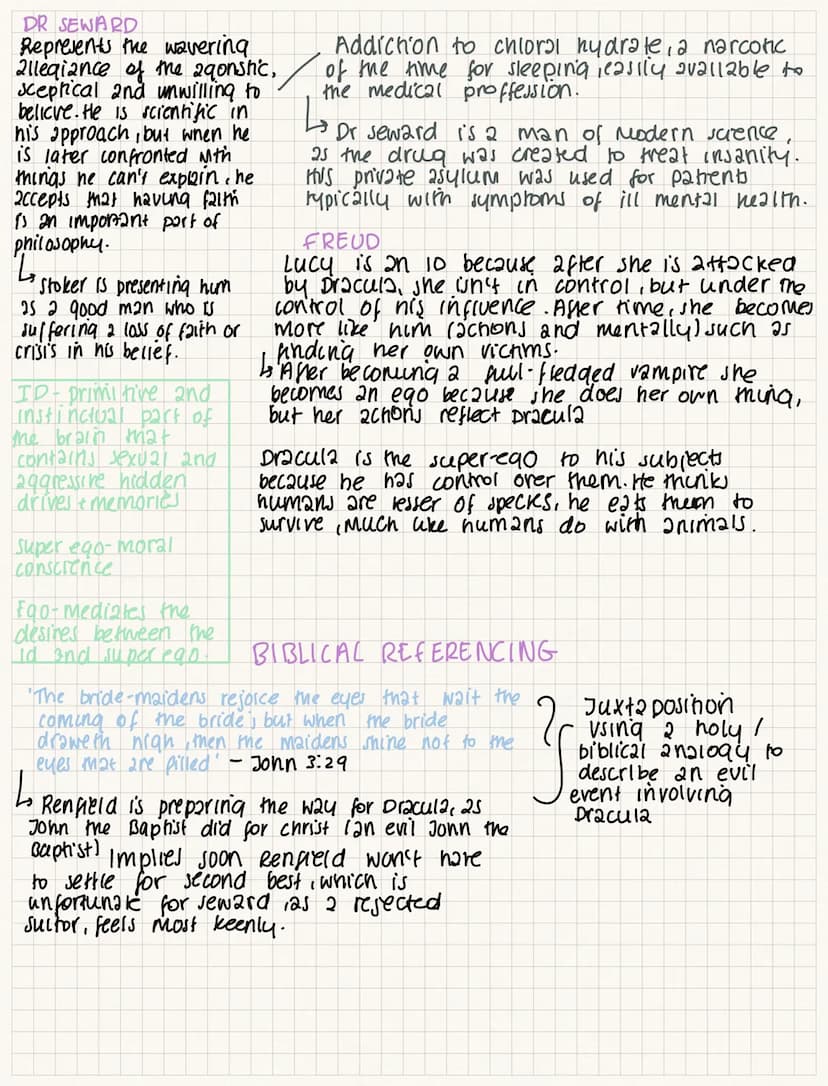 DR SEWARD
Represents the wavering
allegiance of the agonstic,
sceptical and unwilling to
believe. He is scientific in
his approach, but when he
is later confronted with
things he can't explain, he
accepts that having faith
is an important part of
philosophy.
↳ Stoker is presenting him
as a good man who is
suffering a loss of faith or
crisis in his belief.
Addiction to chloral hydrate, a narcotic
of the time for sleeping, easily available to
the medical proffession.
↳ Dr Seward is a man of modern science,
as the drug was created to treat insanity.
His private asylum was used for patients
typically with symptoms of ill mental health.
FREUD
Lucy is an ID because after she is attacked
by Dracula, she isn't in control, but under the
control of his influence. After time, she becomes
more like him (actions and mentally) such as
finding her own victims.
↳ After becoming a full-fledged vampire she
becomes an ego because she does her own thing,
but her actions reflect Dracula
Dracula is the super-ego to his subjects
because he has control over them. He thinks
humans are lesser of species, he eats them to
survive, much like humans do with animals.
ID - primitive and
instinctual part of
the brain that
contains sexual and
aggressive hidden
drives + memories
Super ego - moral
conscience
Ego - mediates the
desires between the
id and super ego.
BIBLICAL REFERENCING
'The bride-maidens rejoice the eyes that wait the
coming of the bride; but when the bride
draweth nigh, then the maidens shine not to the
eyes that are filled' - John 3:29
↳ Renfield is preparing the way for Dracula, as
John the Baptist did for Christ (an evil John the
Baptist) Implies soon Renfield won't have
to settle for second best, which is
unfortunate for Seward, as a rejected
suitor, feels most keenly.
Juxtaposition
Using a holy /
biblical analogy to
describe an evil
event involving
Dracula